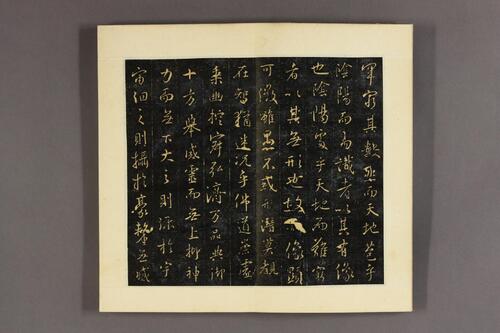 罕窮其數然而天地苞乎
陰陽而易識者以其有像
也陰陽處乎天地而難窮
者以其無形也故像顯
可徵雖愚不惑形潛莫覩
在智猶迷況乎佛道崇虛
乘幽控寂弘濟万品典御
十方舉威靈而無上抑神
力而無下大之則彌於宇
宙細之則攝於豪釐無滅